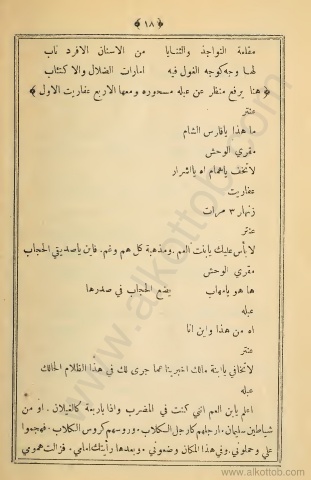 ﴿ ١٨ ﴾
مقلمة النواجذ والثنايا من الاسنان الافرد ناب
لها وجه كوجه الغول فيه امارات الضلال والاكتئاب
﴿ هنا يرفع منظر عن عبله مسحوره ومعها الاربع عفاريت الاول ﴾
عنتر
ما هذا يافارس الشام
مقري الوحش
لاتخف ياهمام اه يااشرار
عفاريت
زنهار ٣ مرات
عنتر
لابأس عليك يابنت العم . ومذهبة كل هم وغم . فاين ياصديقي الحجاب
مقري الوحش
ها هو يامهاب يضع الحجاب في صدرها
عبله
اه من هذا واين انا
عنتر
لاتخافي ياابنة مالك اخبرينا عما جرى لك في هذا الظلام الحالك
عبله
اعلم ياابن العم انني كنت في المضرب واذا باربعة كالغيلان . او من
شياطين سليمان . ارجلهم كارجل الكلاب . وروسهم كروس الكلاب . فهجموا
علي وحملوني . وفي هذا المكان وضعوني . وبعدها رأيتك امامي . فزالت همومي
www.alkottob.com
www.alkottob.com